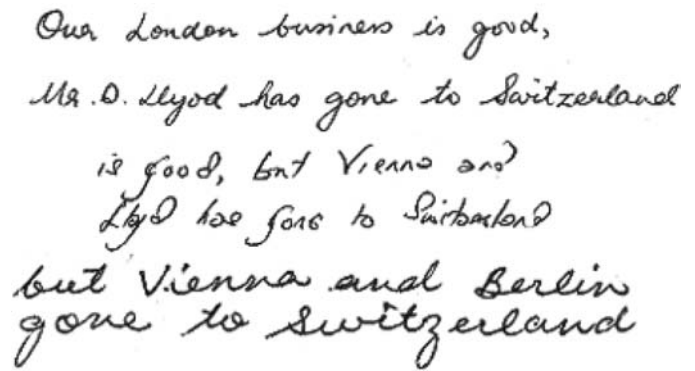 Our London business is good,
Mr. D. Llyod has gone to Switzerland
is good, but Vienna and
Llyd has gone to Switzerland
but Vienna and Berlin
gone to Switzerland